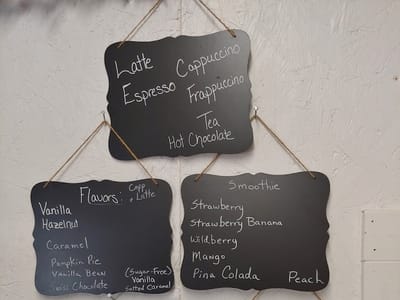 Latte
Cappuccino
Espresso
Frappuccino
Tea
Hot Chocolate
Flavors: Capp
+ Latte
Vanilla
Hazelnut
Caramel
Pumpkin Pie
Vanilla Bean
Swiss Chocolate
(Sugar-Free)
Vanilla
Salted Caramel
Smoothie
Strawberry
Strawberry Banana
Wildberry
Mango
Pina Colada
Peach